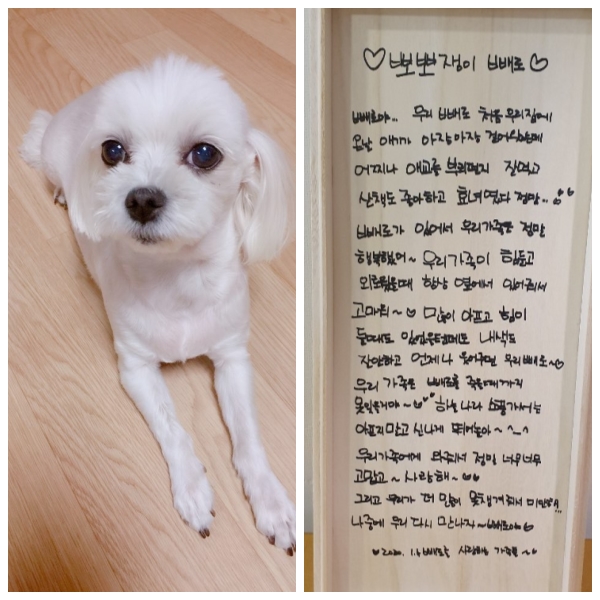 ♡뽀뽀쟁이 빼로♡
빼로야.. 우리 빼로 처음 우리집에
온날 애기가 아장아장 걸어
어찌나 애교를 부리던지 잘먹고
산책도 좋아하고 효녀였다 정말..
빼로가 있어서 우리가족은 정말
행복했어~ 우리가족이 힘들고
외로웠을때 항상 옆에서 있어줘서
고마워~♡ 많이 아프고 힘이
들때도 있었을텐데도 내색도
잘안하고 언제나 웃어주던 우리빼로~♡
우리 가족은 빼로를 죽을때까지
못잊을거야~ 하늘나라 소풍가서는
아프지말고 신나게 뛰어놀아~ ^_^
우리가족에게 와줘서 정말 너무너무
고맙고~ 사랑해~♥♥
그리고 우리가 더 많이 못챙겨줘서 미안해..
나중에 우리 다시 만나자~빼로야♡
♥2020. 1. 사랑하는 가족들~♡